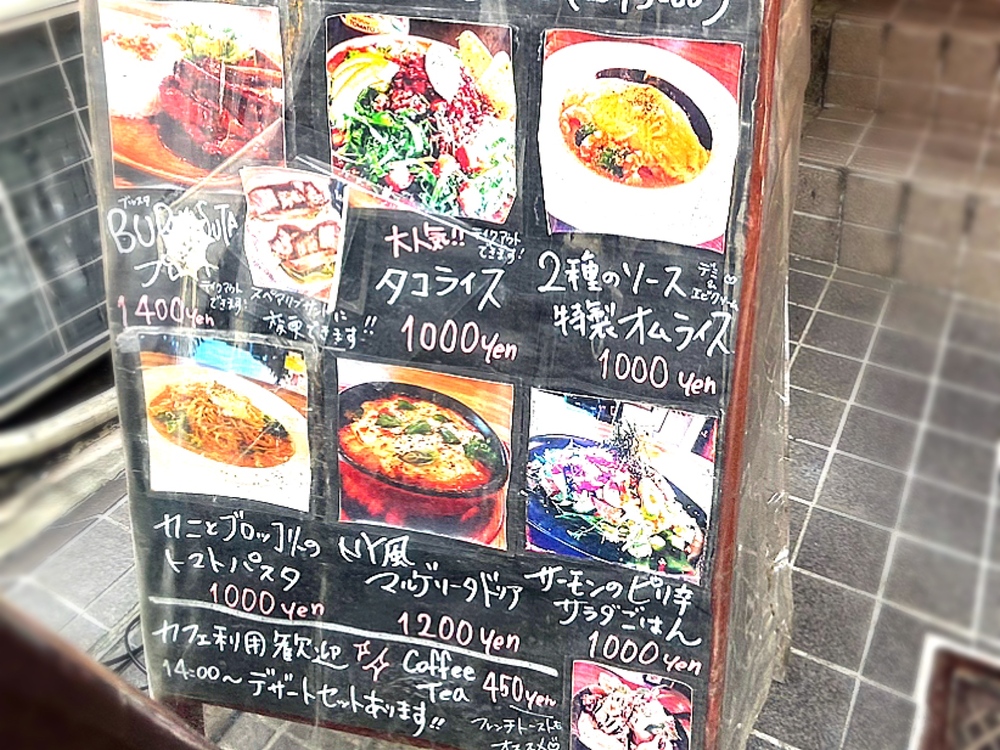 ブッスタ
プレート
テイクアウト
できます!
1400yen
スペアリブサンドに
変更できます!!
大人気!!
テイクアウト
できます!
タコライス
1000yen
2種のソース
デミ
&
特製オムライス
1000yen
カニとブロッコリーの
トマトパスタ
1000yen
NY風
マルゲリータドリア
1200yen
サーモンのピリ辛
サラダごはん
1000yen
カフェ利用歓迎
Coffee
Tea
450yen
14:00〜デザートセットあります!!
フレンチトーストも
オススメ♡